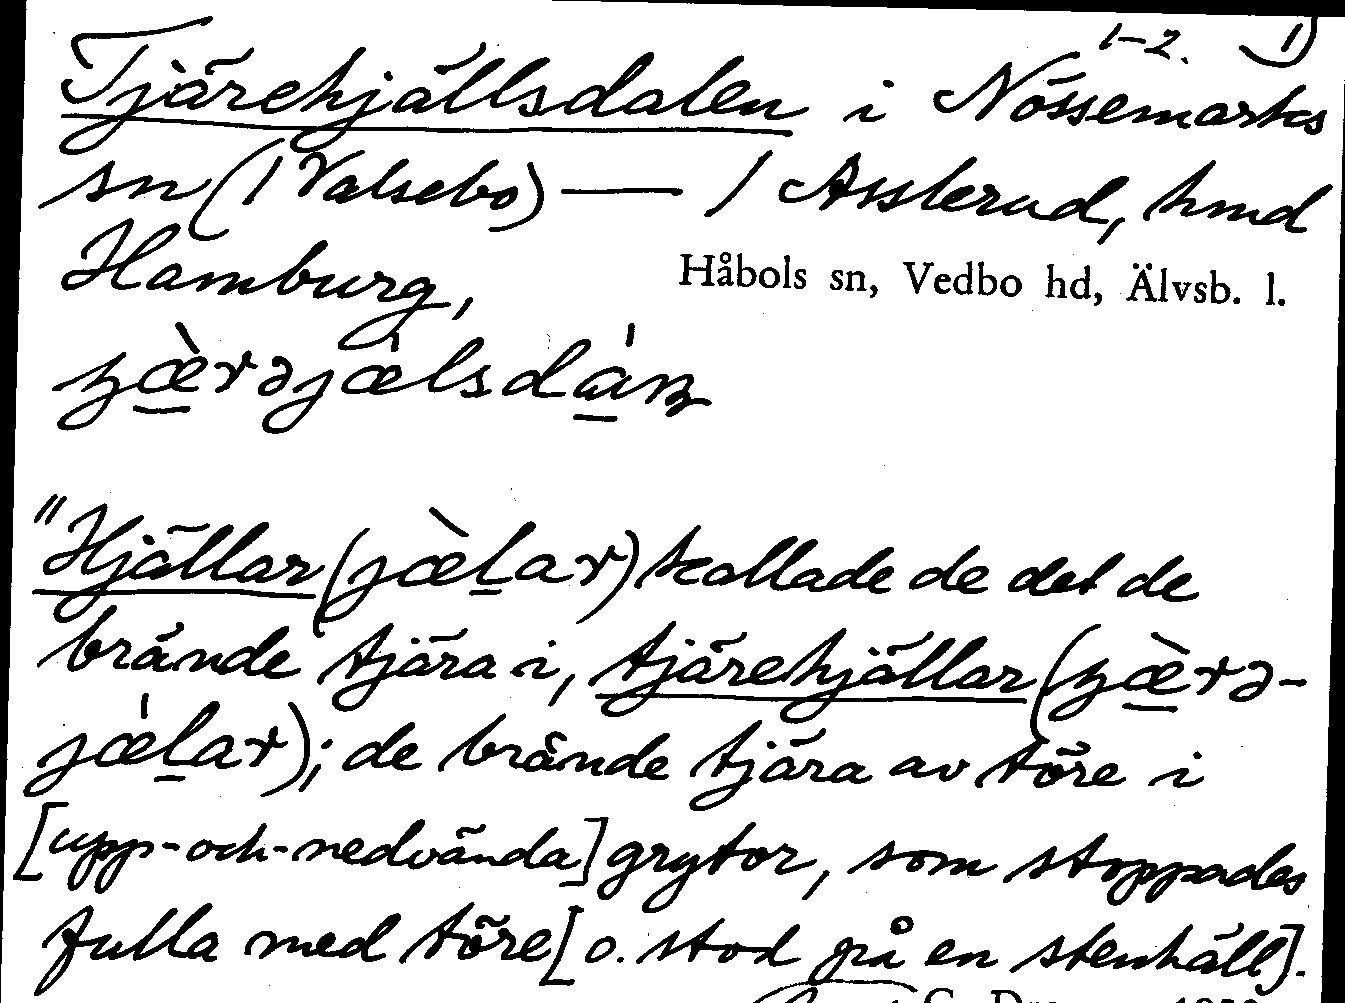 1-2. 1)
Tjärehjällsdalen i Nössemarks
sn (/ Valsebo) — / Asslerud, hmd
Hamburg, Håbols sn, Vedbo hd, Älvsb. l.
"Hjällar ( ) kallade de det de
brände tjära i, tjärehjällar (
); de brände tjära av töre i
[upp-och-nedvända] grytor, som stoppades
fulla med töre [o. stod på en stenhäll].